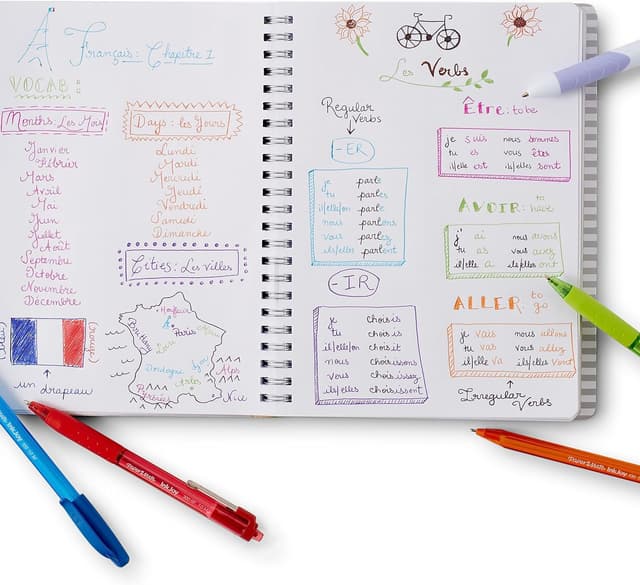 Français: Chapitre 1
VOCAB:
Months: Les Mois
Janvier
Février
Mars
Avril
Mai
Juin
Juillet
Août
Septembre
Octobre
Novembre
Décembre
Days: les Jours
Lundi
Mardi
Mercredi
Jeudi
Vendredi
Samedi
Dimanche
Cities: Les Villes
(bleu)
(rouge)
un drapeau
Honfleur
Paris
Brittany
Loire
Dordogne
Lyon
Alps
Arles
Nice
Les Verbs
Regular
Verbs
-ER
je parle
tu parles
il/elle/on parle
nous parlons
vous parlez
ils/elles parlent
-IR
je choisis
tu choisis
il/elle/on choisit
nous choisissons
vous choisissez
ils/elles choisissent
Être: to be
je suis nous sommes
tu es vous êtes
il/elle est ils/elles sont
AVOIR: to have
j' ai nous avons
tu as vous avez
il/elle a ils/elles ont
ALLER: to go
je vais nous allons
tu vas vous allez
il/elle va ils/elles vont
Irregular
Verbs
PaperMate InkJoy
PaperMate InkJoy
PaperMate InkJoy